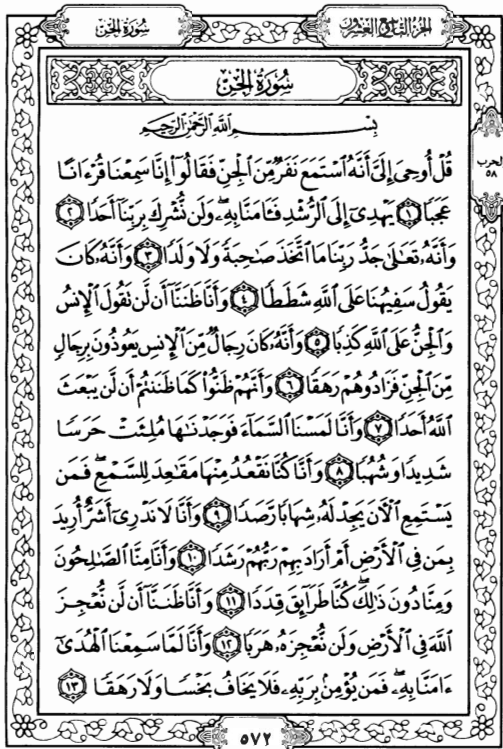 الجزء التاسع والعشرون
سُورَةُ الْجِنِّ
سُورَةُ الْجِنِّ
بِسْمِ اللَّهِ الرَّحْمَٰنِ الرَّحِيمِ
قُلْ أُوحِيَ إِلَيَّ أَنَّهُ ٱسْتَمَعَ نَفَرٌ مِّنَ ٱلْجِنِّ فَقَالُوٓا۟ إِنَّا سَمِعْنَا قُرْءَانًا
عَجَبًا ١ يَهْدِىٓ إِلَى ٱلرُّشْدِ فَـَٔامَنَّا بِهِۦ وَلَن نُّشْرِكَ بِرَبِّنَآ أَحَدًا ٢
وَأَنَّهُۥ تَعَـٰلَىٰ جَدُّ رَبِّنَا مَا ٱتَّخَذَ صَـٰحِبَةً وَلَا وَلَدًا ٣ وَأَنَّهُۥ كَانَ
يَقُولُ سَفِيهُنَا عَلَى ٱللَّهِ شَطَطًا ٤ وَأَنَّا ظَنَنَّآ أَن لَّن نَّقُولَ ٱلْإِنسُ
وَٱلْجِنُّ عَلَى ٱللَّهِ كَذِبًا ٥ وَأَنَّهُۥ كَانَ رِجَالٌ مِّنَ ٱلْإِنسِ يَعُوذُونَ بِرِجَالٍ
مِّنَ ٱلْجِنِّ فَزَادُوهُمْ رَهَقًا ٦ وَأَنَّهُمْ ظَنُّوا۟ كَمَا ظَنَنتُمْ أَن لَّن يَبْعَثَ
ٱللَّهُ أَحَدًا ٧ وَأَنَّا لَمَسْنَا ٱلسَّمَآءَ فَوَجَدْنَـٰهَا مُلِئَتْ حَرَسًا
شَدِيدًا وَشُهُبًا ٨ وَأَنَّا كُنَّا نَقْعُدُ مِنْهَا مَقَـٰعِدَ لِلسَّمْعِ فَمَن
يَسْتَمِعِ ٱلْـَٔانَ يَجِدْ لَهُۥ شِهَابًا رَّصَدًا ٩ وَأَنَّا لَا نَدْرِىٓ أَشَرٌّ أُرِيدَ
بِمَن فِى ٱلْأَرْضِ أَمْ أَرَادَ بِهِمْ رَبُّهُمْ رَشَدًا ١٠ وَأَنَّا مِنَّا ٱلصَّـٰلِحُونَ
وَمِنَّا دُونَ ذَٰلِكَ كُنَّا طَرَآئِقَ قِدَدًا ١١ وَأَنَّا ظَنَنَّآ أَن لَّن نُّعْجِزَ
ٱللَّهَ فِى ٱلْأَرْضِ وَلَن نُّعْجِزَهُۥ هَرَبًا ١٢ وَأَنَّا لَمَّا سَمِعْنَا ٱلْهُدَىٰٓ
ءَامَنَّا بِهِۦ فَمَن يُؤْمِنۢ بِرَبِّهِۦ فَلَا يَخَافُ بَخْسًا وَلَا رَهَقًا ١٣
الحزب
٥٨
٥٧٢